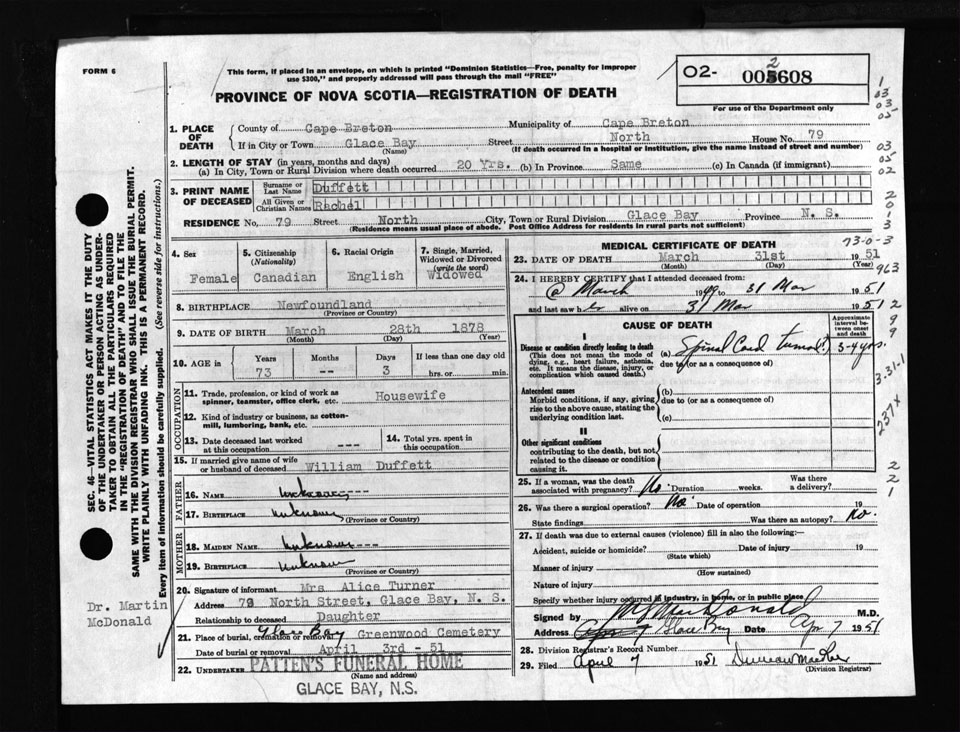 FORM 6
This form, if placed in an envelope, on which is printed "Dominion Statistics—Free, penalty for improper
use $300," and properly addressed will pass through the mail "FREE"
PROVINCE OF NOVA SCOTIA—REGISTRATION OF DEATH
02- 005608
2
For use of the Department only
1. PLACE OF DEATH
County of Cape Breton Municipality of Cape Breton
If in City or Town Glace Bay Street North House No. 79
(Name) (If death occurred in a hospital or institution, give the name instead of street and number)
2. LENGTH OF STAY (in years, months and days)
(a) In City, Town or Rural Division where death occurred 20 Yrs. (b) In Province Same (c) In Canada (if immigrant)
3. PRINT NAME OF DECEASED
Surname or Last Name Duffett
All Given or Christian Names Rachel
RESIDENCE No. 79 Street North City, Town or Rural Division Glace Bay Province N. S.
(Residence means usual place of abode. Post Office Address for residents in rural parts not sufficient)
4. Sex Female
5. Citizenship (Nationality) Canadian
6. Racial Origin English
7. Single, Married, Widowed or Divorced (write the word) Widowed
8. BIRTHPLACE Newfoundland
(Province or Country)
9. DATE OF BIRTH March 28th 1878
(Month) (Day) (Year)
10. AGE in Years 73 Months -- Days 3 If less than one day old hrs. or min.
OCCUPATION
11. Trade, profession, or kind of work as spinner, teamster, office clerk, etc. Housewife
12. Kind of industry or business, as cotton-mill, lumbering, bank, etc.
13. Date deceased last worked at this occupation ---
14. Total yrs. spent in this occupation
15. If married give name of wife or husband of deceased William Duffett
FATHER
16. NAME unknown ---
17. BIRTHPLACE unknown
(Province or Country)
MOTHER
18. MAIDEN NAME unknown ---
19. BIRTHPLACE unknown
(Province or Country)
20. Signature of informant Mrs Alice Turner
Address 79 North Street, Glace Bay, N. S.
Relationship to deceased Daughter
21. Place of burial, cremation or removal Glace Bay Greenwood Cemetery
Date of burial or removal April 3rd - 51
22. UNDERTAKER PATTEN'S FUNERAL HOME
(Name and address)
GLACE BAY, N.S.
MEDICAL CERTIFICATE OF DEATH
73-0-3
23. DATE OF DEATH March 31st 1951
(Month) (Day) (Year)
24. I HEREBY CERTIFY that I attended deceased from:
@ March 1949 to 31 Mar 1951
and last saw her alive on 31 Mar 1951
CAUSE OF DEATH
Approximate interval between onset and death
I
Disease or condition directly leading to death
(This does not mean the mode of dying, e.g., heart failure, asthenia, etc. It means the disease, injury, or complication which caused death.)
(a) Spinal Cord tumor(?) 3-4 yrs.
due to (or as a consequence of)
Antecedent causes
Morbid conditions, if any, giving rise to the above cause, stating the underlying condition last.
(b)
due to (or as a consequence of)
(c)
II
Other significant conditions
contributing to the death, but not related to the disease or condition causing it.
25. If a woman, was the death associated with pregnancy? No. Duration weeks. Was there a delivery?
26. Was there a surgical operation? No. Date of operation 19
State findings Was there an autopsy? No.
27. If death was due to external causes (violence) fill in also the following:—
Accident, suicide or homicide? Date of injury 19
(State which)
Manner of injury
(How sustained)
Nature of injury
Specify whether injury occurred in industry, in home, or in public place
Signed by MacDonald M.D.
Address Glace Bay Date Apr 7 1951
28. Division Registrar's Record Number
29. Filed April 7 1951 Duncan
(Division Registrar)
SEC. 46—VITAL STATISTICS ACT MAKES IT THE DUTY
OF THE UNDERTAKER OR PERSON ACTING AS UNDER-
TAKER TO OBTAIN ALL THE PARTICULARS REQUIRED
IN THE "REGISTRATION OF DEATH" AND TO FILE THE
SAME WITH THE DIVISION REGISTRAR WHO SHALL ISSUE THE BURIAL PERMIT.
WRITE PLAINLY WITH UNFADING INK. THIS IS A PERMANENT RECORD.
Every item of information should be carefully supplied. (See reverse side for instructions.)
Dr. Martin
McDonald
1
03
03
05
03
05
02
2
0
1
3
963
2
9
9
3.31.1
237X
2
2
1